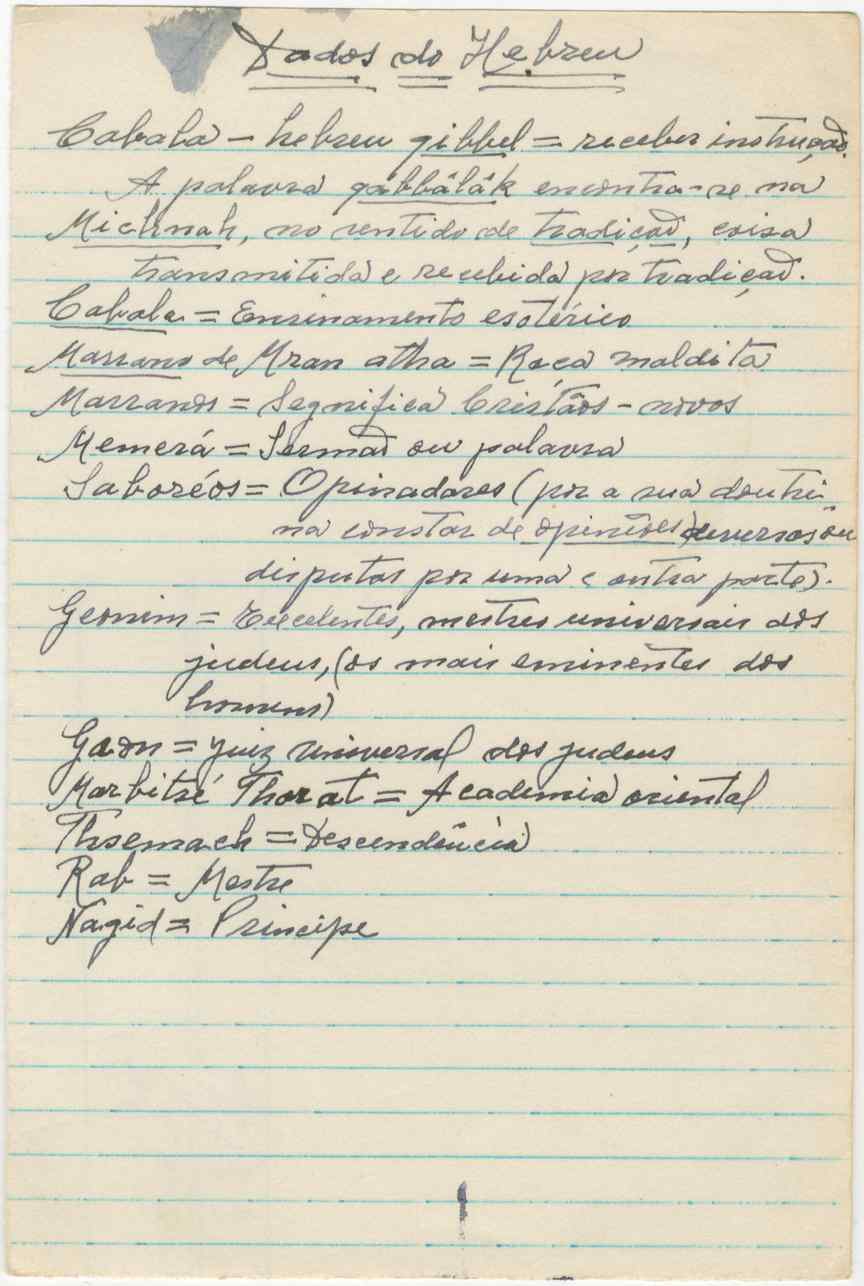 Dados do Hebreu
Cabala - hebreu gibbel = receber instrução.
A palavra gabbâlâk encontra-se na
Michnah, no sentido de tradição, coisa
transmitida e recebida por tradição.
Cabala = Ensinamento esotérico
Marrano de Mran atha = Raça maldita
Marranos = Segnifica Cristãos-novos
Memerá = Sermão ou palavra
Saboréos = Opinadores (por a sua doutri-
na constar de opiniões diversas ou
disputas por uma e outra parte).
Geonim = Excelentes, mestres universais dos
judeus, (os mais eminentes dos
homens)
Gaon = juiz universal dos judeus
Marbitzé Thorat = Academia oriental
Thsemach = Descendência
Rab = Mestre
Nagid = Principe